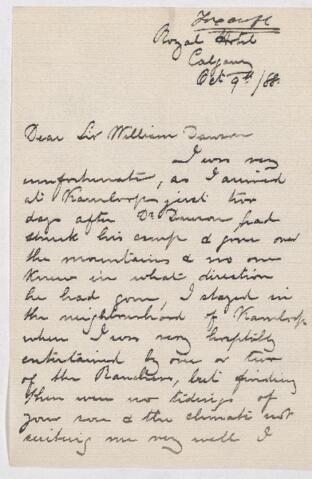 Royal Hotel
Calgary
Oct 9th/88.
Dear Sir William Dawson
I was very
unfortunate, as I arrived
at Kamloops just two
days after Dr Dawson had
struck his camp & gone over
the mountains & no one
knew in what direction
he had gone, I stayed in
the neighbourhood of Kamloops
when I was very hospitibly
entertained by one or two
of the Ranchers, but finding
there were no tidings of
your son & the climate not
suiting me very well I